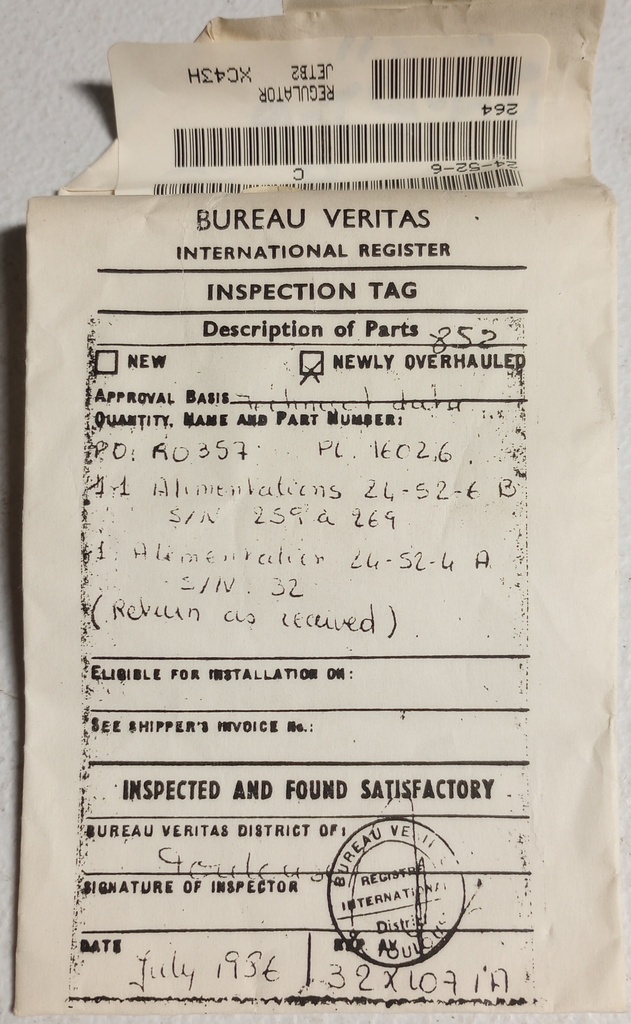 XC43H
REGULATOR
JETB2
264
24-52-6
C
BUREAU VERITAS
INTERNATIONAL REGISTER
INSPECTION TAG
Description of Parts 852
NEW
NEWLY OVERHAULED
APPROVAL BASIS
QUANTITY, NAME AND PART NUMBER:
PO: RO357 PL. 1602.6
11 Alimentations 24-52-6 B
S/N 259 à 269
1 Alimentation 24-52-4 A
S/N. 32
(Return as received)
ELIGIBLE FOR INSTALLATION ON:
SEE SHIPPER'S INVOICE No.:
INSPECTED AND FOUND SATISFACTORY
BUREAU VERITAS DISTRICT OF:
SIGNATURE OF INSPECTOR
BUREAU
INTERNATIONAL
DATE
July